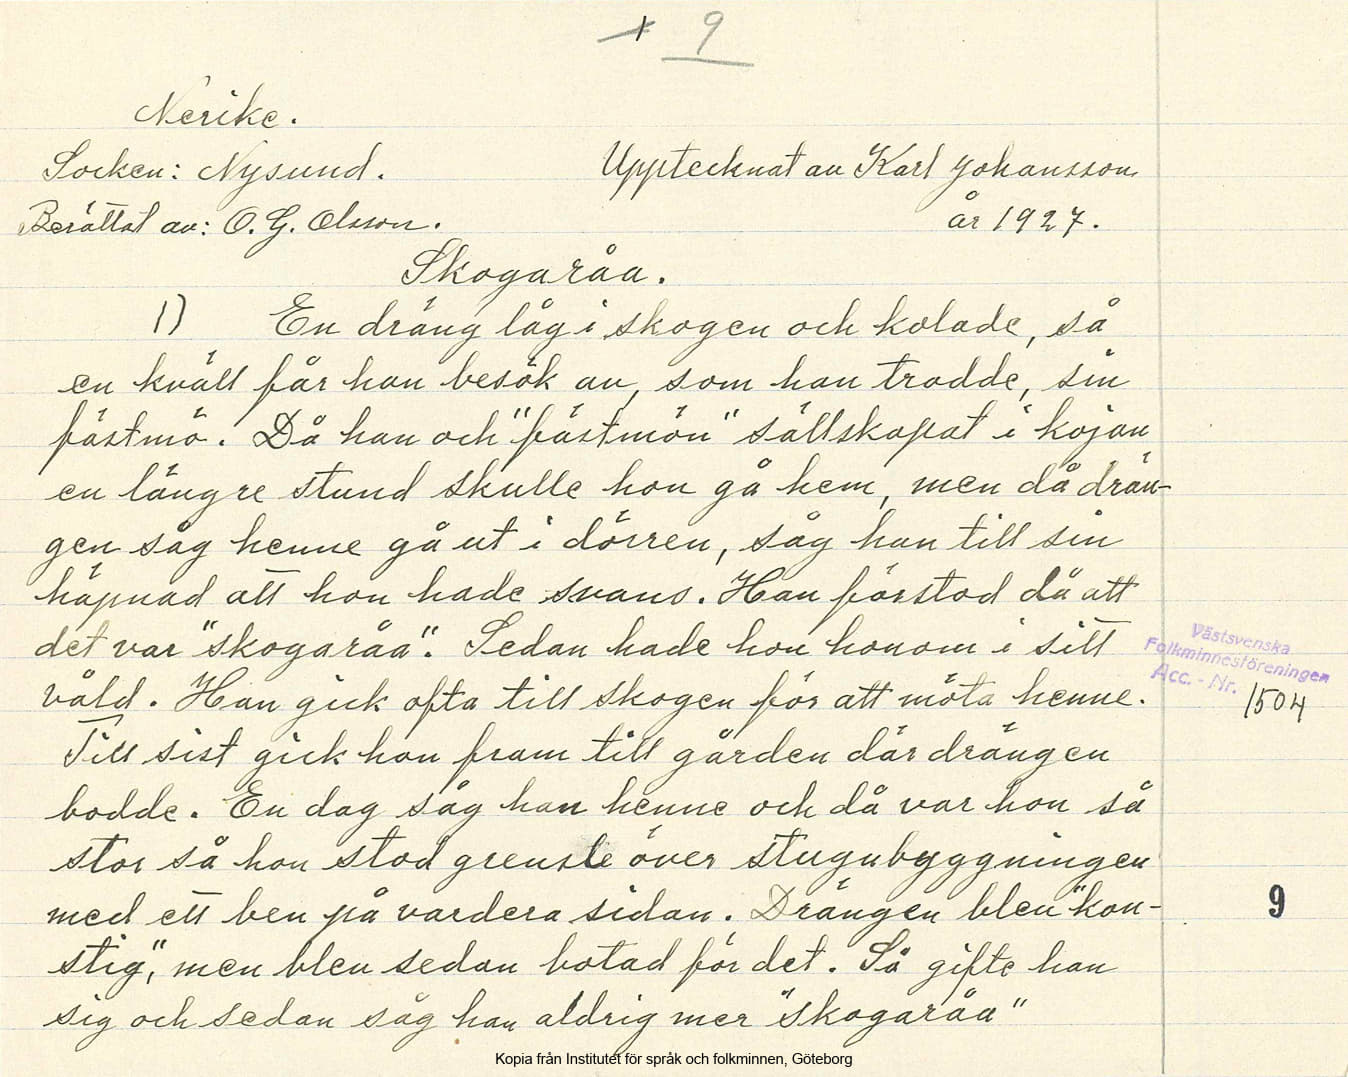 + 9
Nerike.
Socken: Nysund.
Upptecknat av Karl Johansson
Berättat av: O. G. Olsson.
år 1927.
Skogaråa.
1) En dräng låg i skogen och kolade, så
en kväll får han besök av, som han trodde, sin
fästmö. Då han och "fästmön" sällskapat i kojan
en längre stund skulle hon gå hem, men då drän-
gen såg henne gå ut i dörren, såg han till sin
häpnad att hon hade svans. Han förstod då att
det var "skogaråa". Sedan hade hon honom i sitt
våld. Han gick ofta till skogen för att möta henne.
Till sist gick hon fram till gården där drängen
bodde. En dag såg han henne och då var hon så
stor så hon stod grensle över stugubyggningen
med ett ben på vardera sidan. Drängen blev "kon-
stig", men blev sedan botad för det. Så gifte han
sig och sedan såg han aldrig mer "skogaråa"
Västsvenska
Folkminnesföreningen
Acc. - Nr. 1504
9
Kopia från Institutet för språk och folkminnen, Göteborg